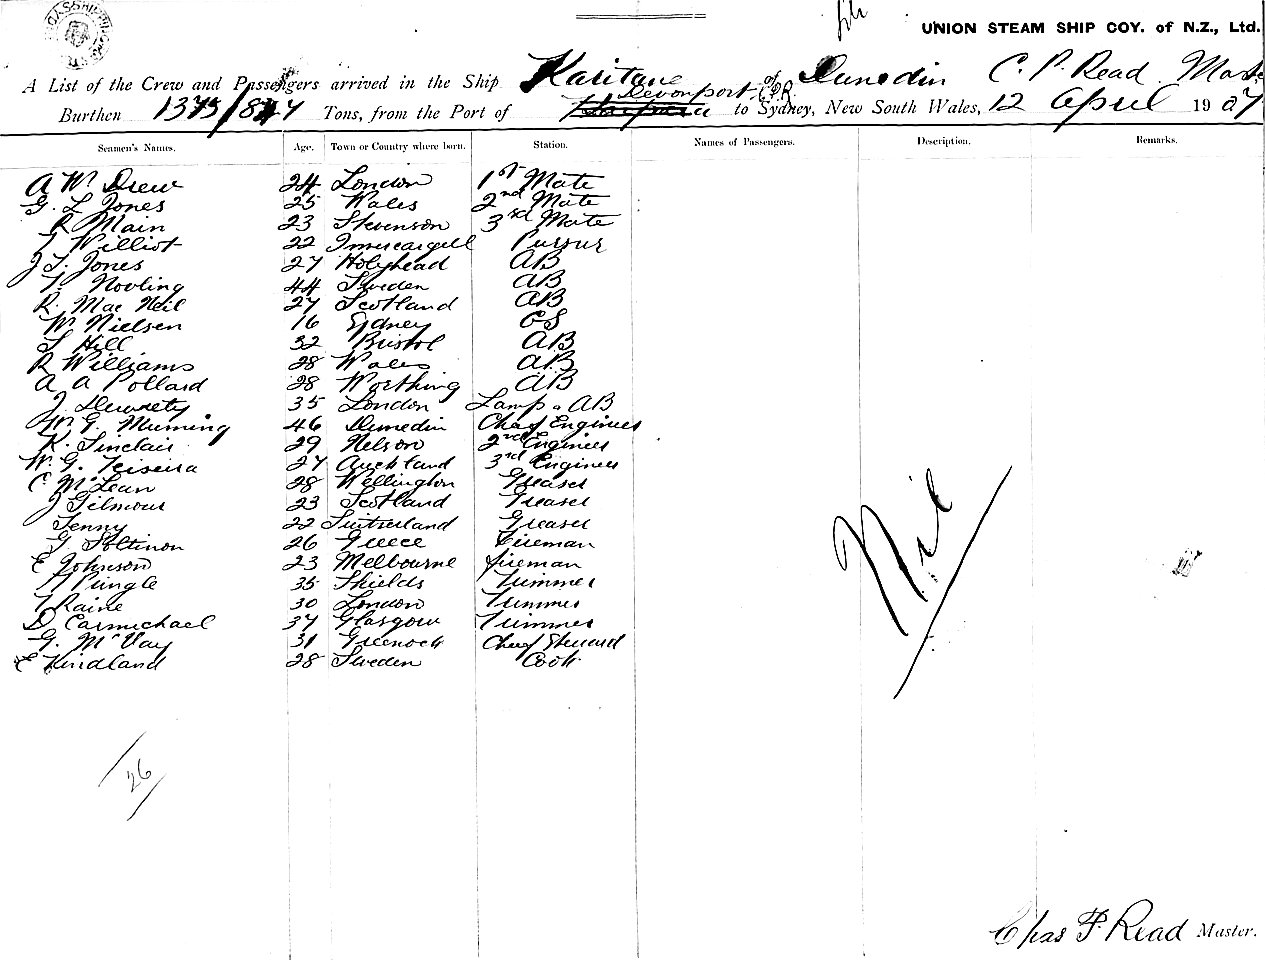 UNION STEAM SHIP COY. of N.Z., Ltd.
A List of the Crew and Passengers arrived in the Ship Karitane of Dunedin C. P. Read Mast
Devonport
Burthen 1375/847 Tons, from the Port of to Sydney, New South Wales, 12 April 1907
Seamen's Names. Age. Town or Country where born. Station. Names of Passengers. Description. Remarks.
A W Drew 24 London 1st Mate
G. L Jones 25 Wales 2nd Mate
R Main 23 Stevenson 3rd Mate
Williot 22 Invercargill Pursur
J T. Jones 27 Holyhead AB
Nooling 44 Sweden AB
R. Mac Neil 27 Scotland AB
W. Nielsen 16 Sydney OS
S Hill 32 Bristol AB
R Williams 28 Wales AB
A A Pollard 28 Worthing AB
J. 35 London Lamp & AB
G. Mumming 46 Dunedin Chief Engineer
K. Sinclair 29 Nelson 2nd Engineer
W. G. Teixeira 27 Auckland 3rd Engineer
C McLean 28 Wellington Greaser
J Gilmour 23 Scotland Greaser
Jenny 22 Switzerland Greaser
G. Soltinon 26 Greece Fireman
E Johnson 23 Melbourne fireman
Pringle 35 Shields Trimmer
Raine 30 London Trimmer
D Carmichael 37 Glasgow Trimmer
G. McVay 31 Greenock Chief Steward
E Kindland 28 Sweden Cook
Nil
26
Chas P. Read Master.